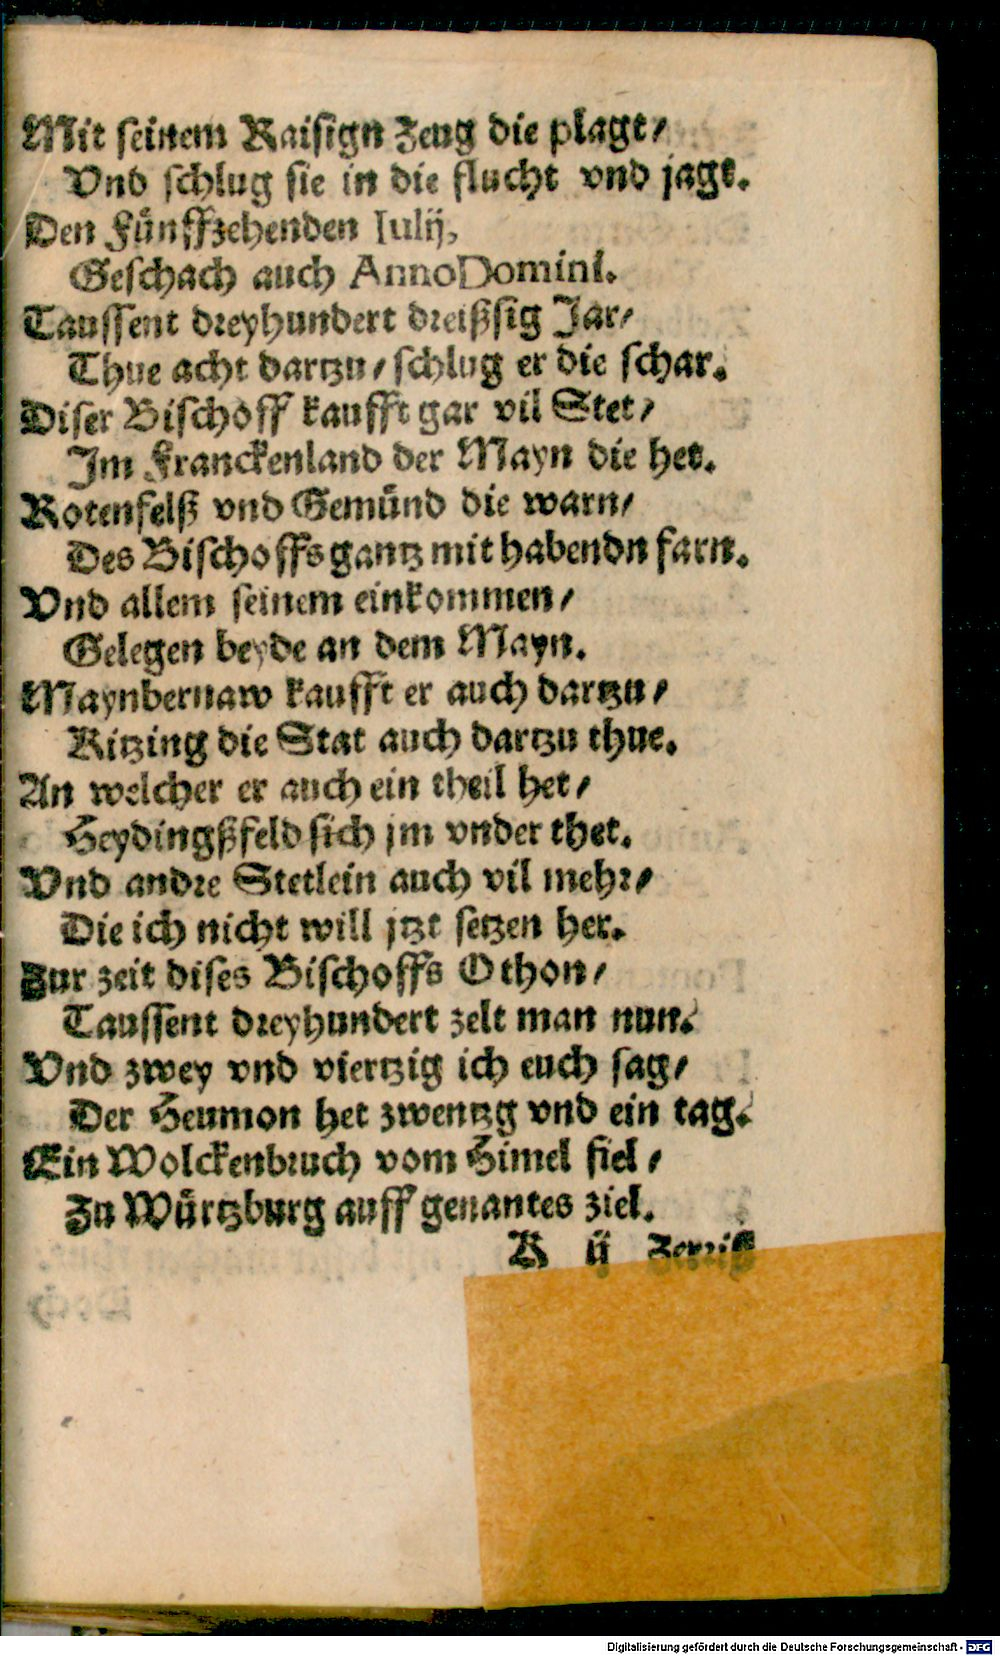 Mit seinem Raisign Zeug die plagt/
Vnd schlug sie in die flucht vnd jagt.
Den Fünffzehenden Iulij,
Geschach auch Anno Domini.
Taussent dreyhundert dreißsig Jar/
Thue acht dartzu/ schlug er die schar.
Diser Bischoff kaufft gar vil Stet/
Im Franckenland der Mayn die het.
Rotenfelß vnd Gemünd die warn/
Des Bischoffs gantz mit habendn farn.
Vnd allem seinem einkommen/
Gelegen beyde an dem Mayn.
Maynbernaw kaufft er auch dartzu/
Kitzing die Stat auch dartzu thue.
An welcher er auch ein theil het/
Heydingßfeld sich jm vnder thet.
Vnd andre Stetlein auch vil mehr/
Die ich nicht will jtzt setzen her.
Zur zeit dises Bischoffs Othon/
Taussent dreyhundert zelt man nun.
Vnd zwey vnd viertzig ich euch sag/
Der Heumon het zwentzg vnd ein tag.
Ein Wolckenbruch vom Himel fiel/
Zu Würtzburg auff genantes ziel.
K ij Zerriß
Digitalisierung gefördert durch die Deutsche Forschungsgemeinschaft - DFG